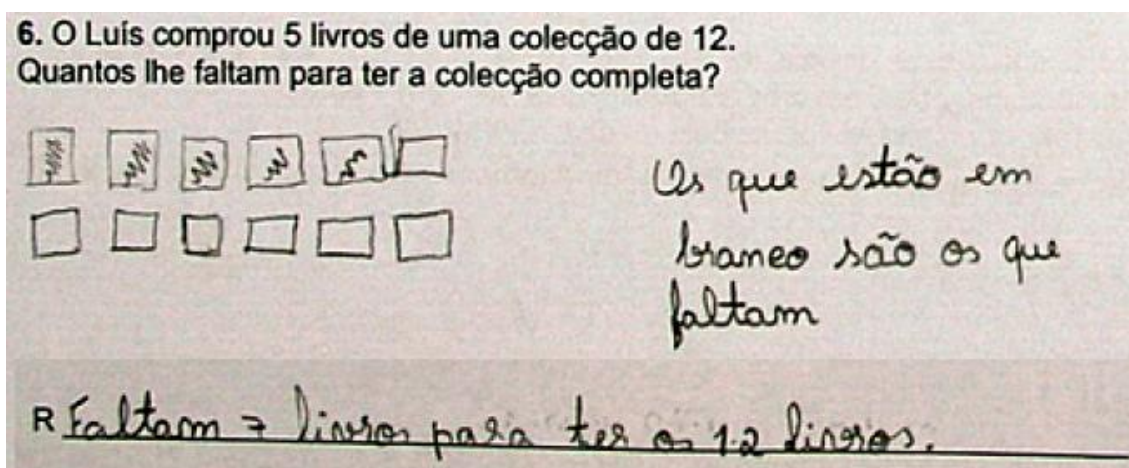 6. O Luís comprou 5 livros de uma colecção de 12.
Quantos lhe faltam para ter a colecção completa?
Os que estão em
branco são os que
faltam
R Faltam 7 livros para ter os 12 livros.